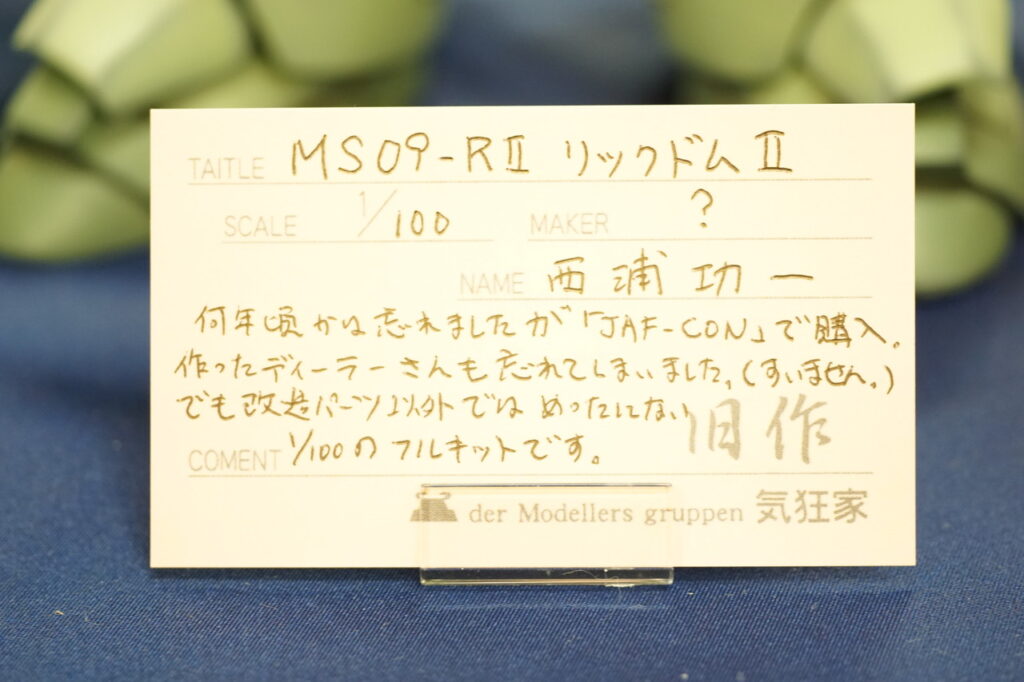 TAITLE MS09-RⅡ リックドムⅡ
SCALE 1/100 MAKER ?
NAME 西浦功一
何年頃かは忘れましたが「JAF-CON」で購入。
作ったディーラーさんも忘れてしまいました。(すいません。)
でも改造パーツ以外ではめったにない
旧作
COMENT 1/100のフルキットです。
der Modellers gruppen 気狂家